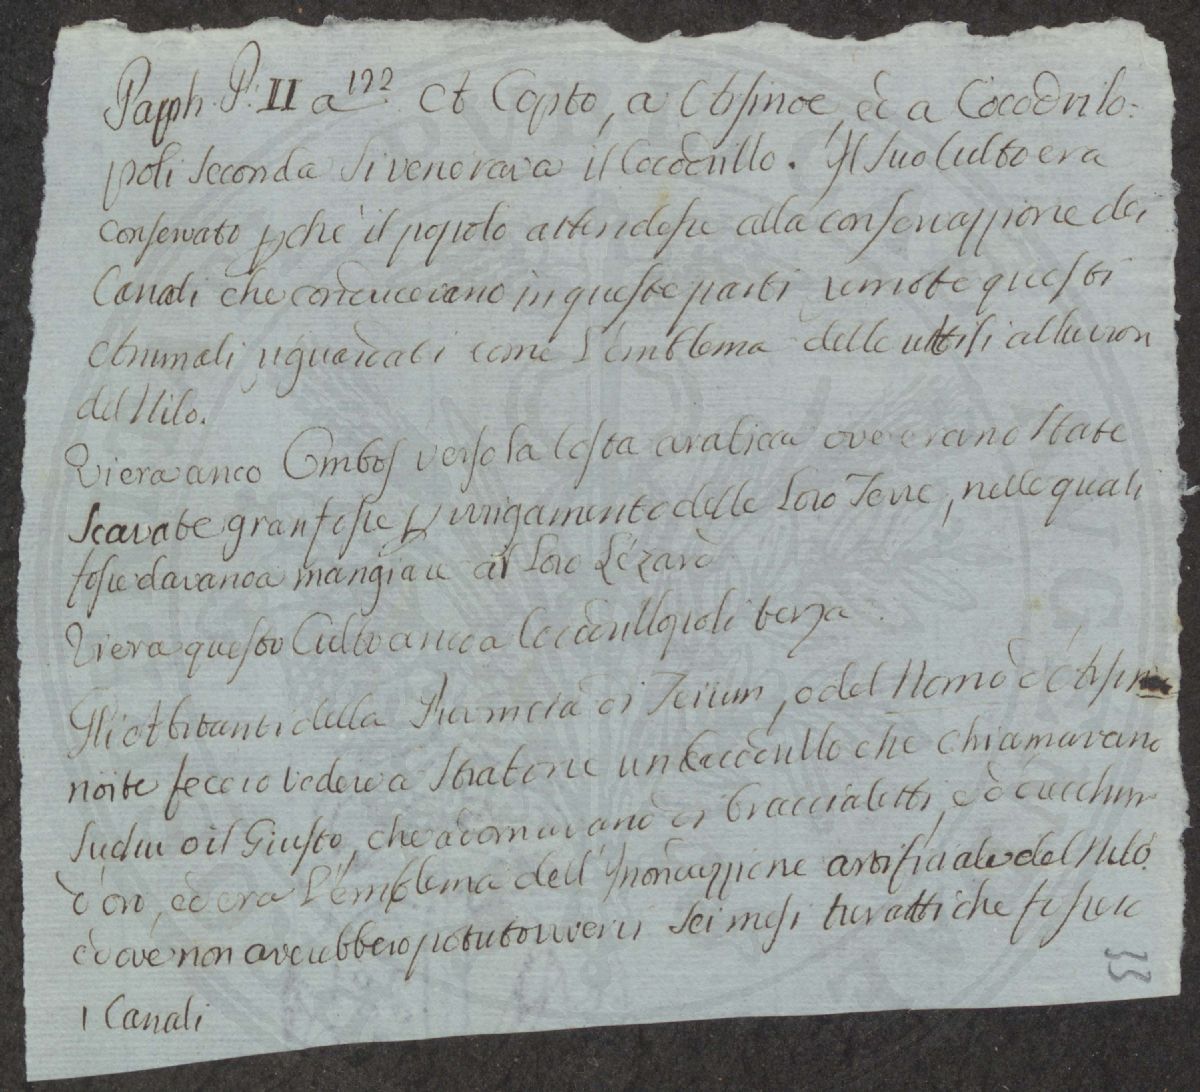 Papph. P: II a 122 At Copto, a Arsinoe, ed a Cocodrilo-
poli seconda si venerava il Cocodrillo. Il suo Culto era
conservato pchè il popolo attendesse alla conservazzione dei
Canali che conducevano in queste parti remote questi
Animali riguardati come l'emblema delle uttili alluvion
del Nilo.
Vi era anco Ombos verso la Costa arabica ove erano state
scavate gran fosse p irrigamento delle loro Terre, nelle quali
fosse davano a mangiare al loro Lézard
Vi era questo Culto anco a Cocodrillopoli terza.
Gli Abitanti della Provincia di Feium, o del Nomo d'Arsi
noite fecero vedere a Strabone un Cocodrillo che chiamavano
Suchu o il Giusto, che adornavano di braccialetti, e d'orecchini
d'oro, ed era l'emblema dell'Inondazzione artificiale del Nilo
ed ove non averebbero potuto vivervi sei mesi turatti che fossero
i Canali
55